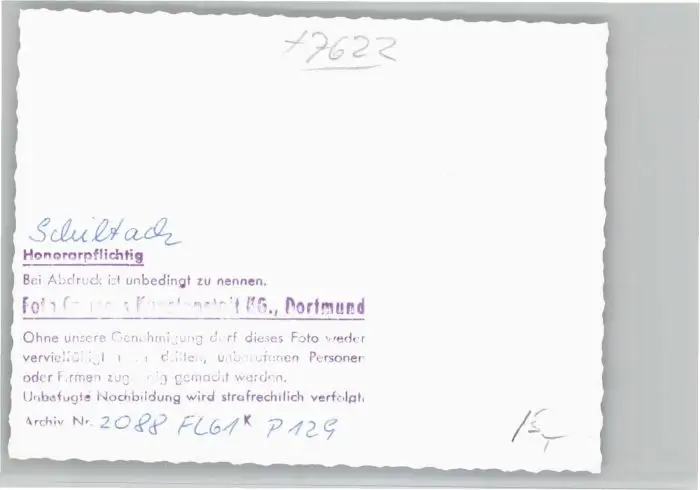 +7622
Schiltach
Honorarpflichtig
Bei Abdruck ist unbedingt zu nennen.
Foto KG., Dortmund
Ohne unsere Genehmigung darf dieses Foto weder
vervielfältigt dritten, unberufenen Personen
oder Firmen zugängig gemacht werden.
Unbefugte Nachbildung wird strafrechtlich verfolgt.
Archiv Nr. 2088 FLG1K P129